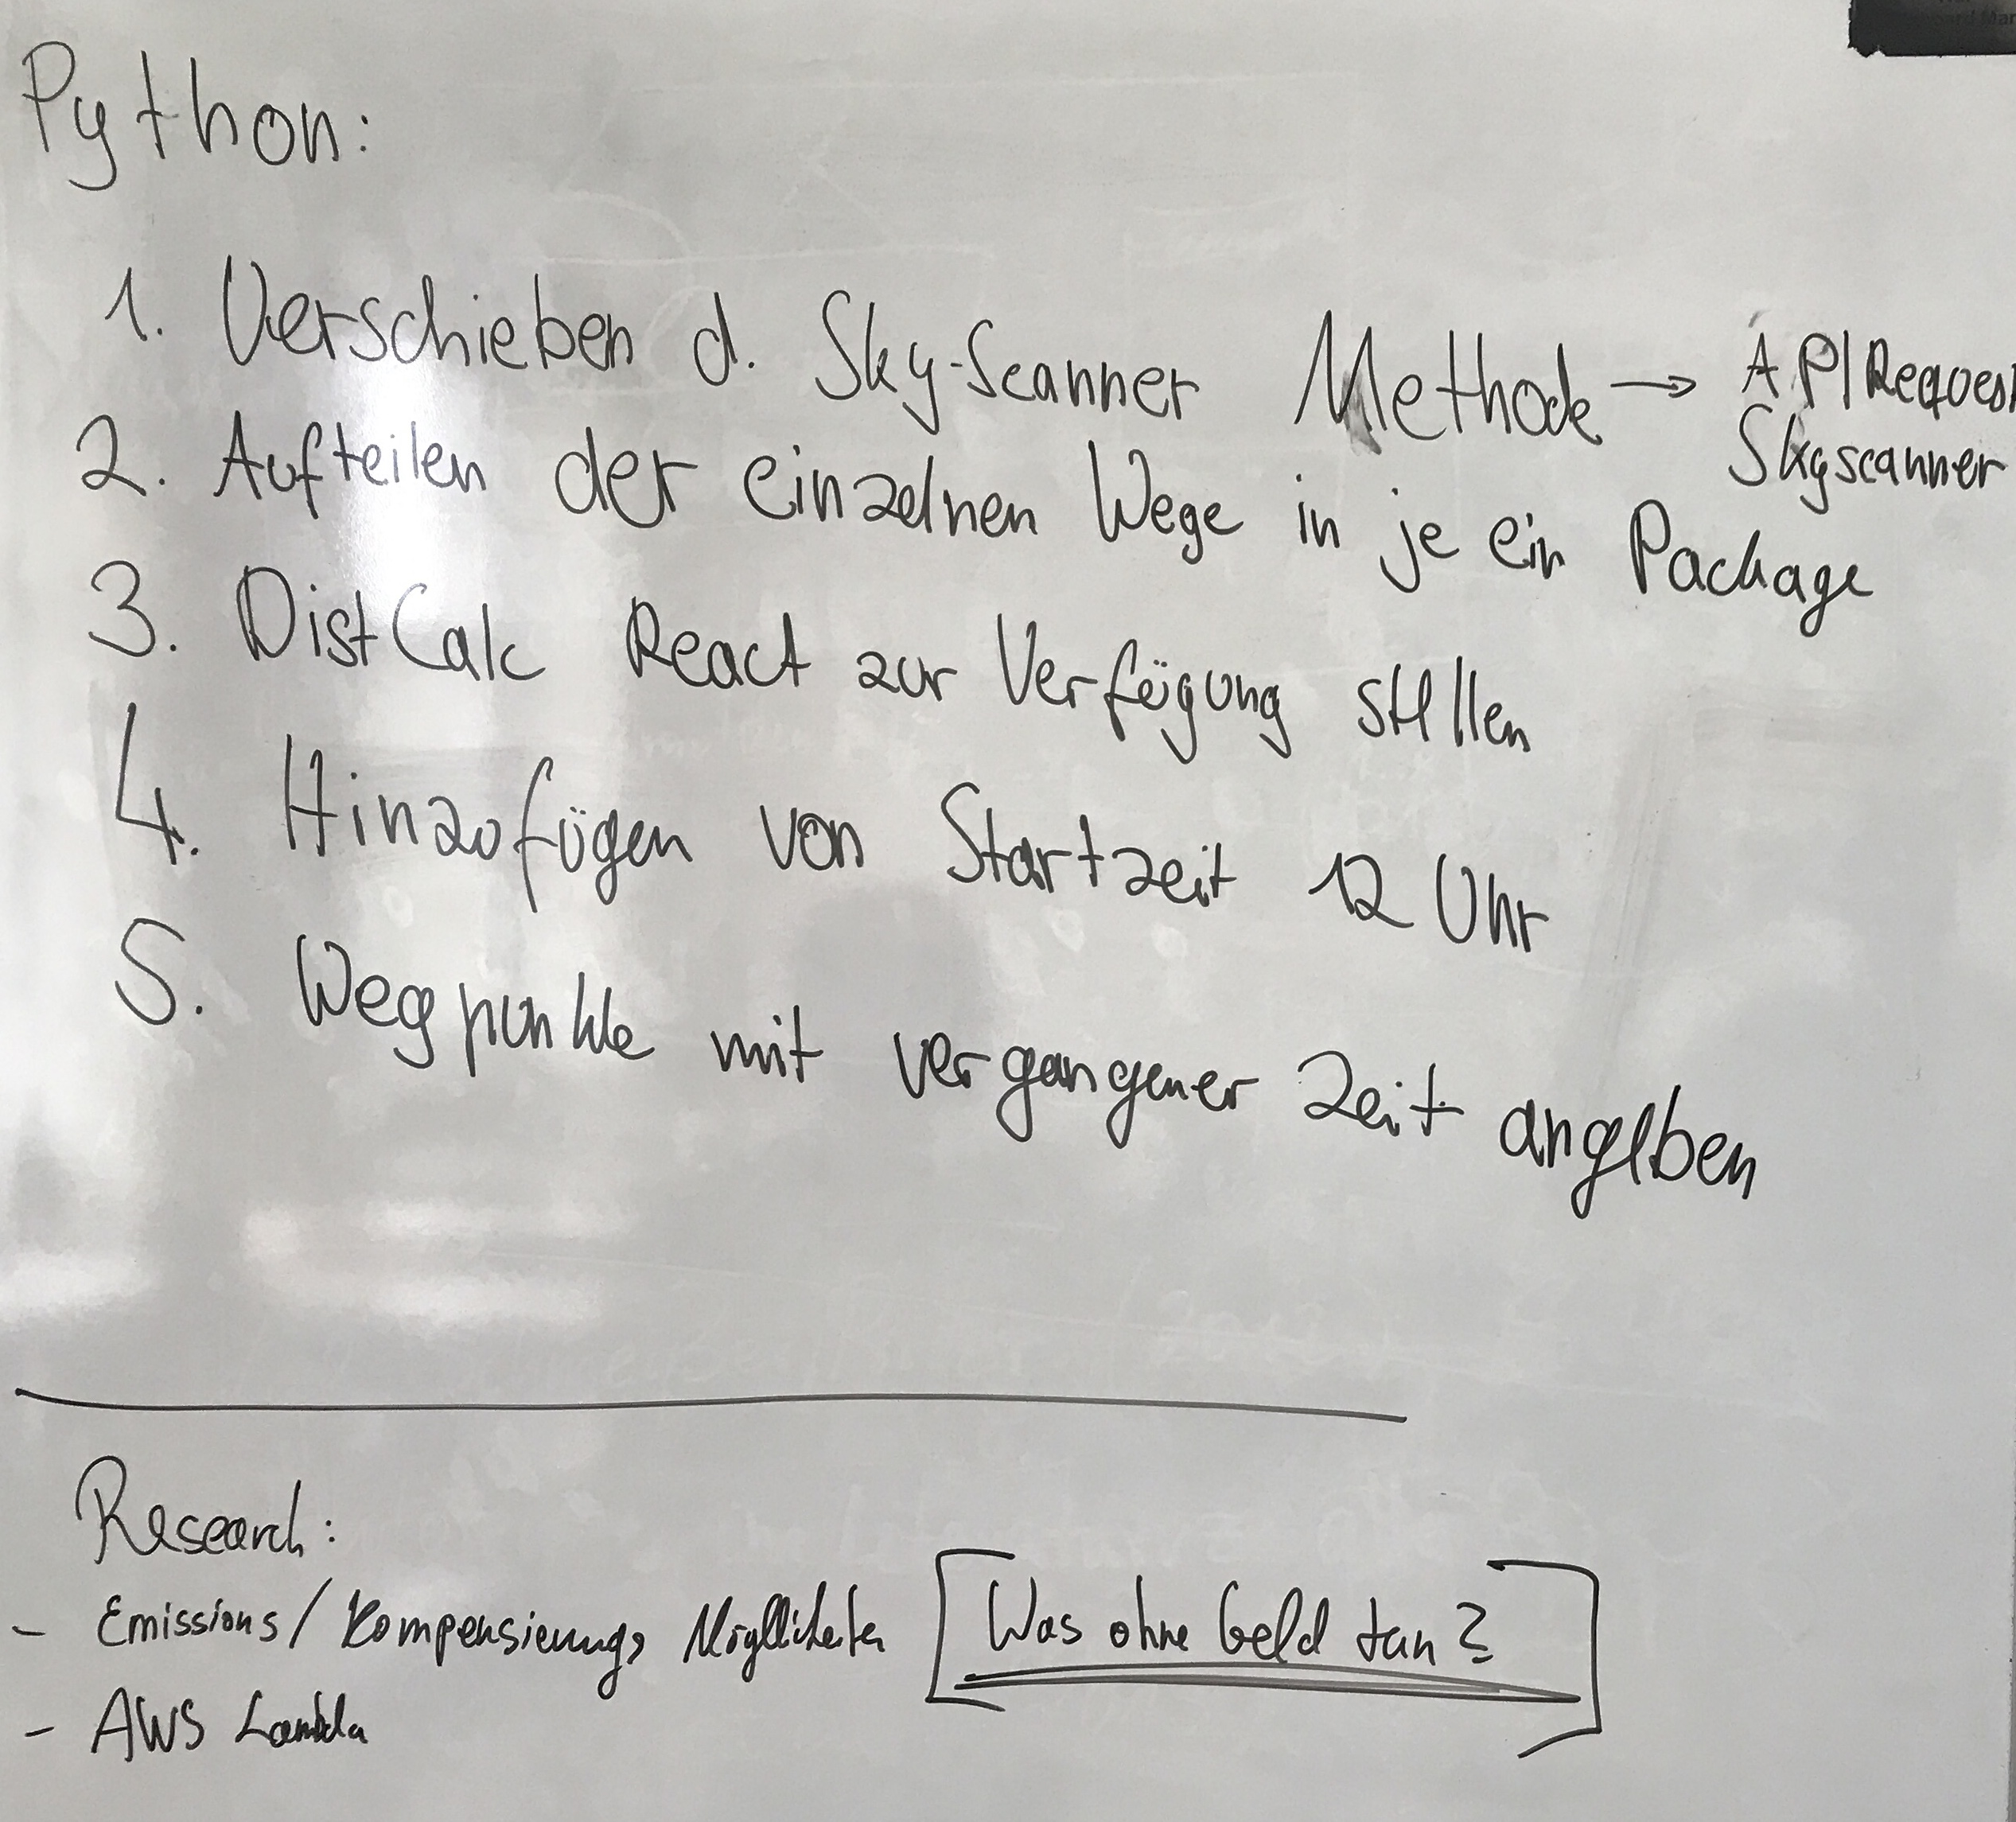 Python:
1. Verschieben d. Sky-Scanner Methode → API Request
Skyscanner
2. Aufteilen der einzelnen Wege in je ein Package
3. DistCalc React zur Verfügung stellen
4. Hinzufügen von Startzeit 12 Uhr
5. Wegpunkte mit vergangener Zeit angeben
Research:
- Emissions/Kompensierungs [Was ohne Geld tun?]
- AWS Lambda